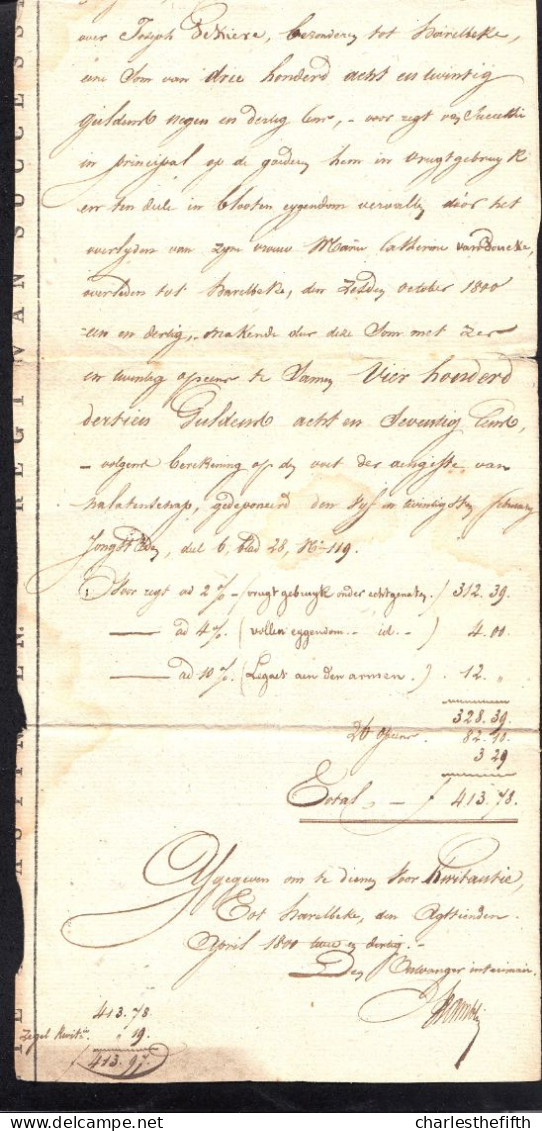 over Joseph Dekiere, bezonderen tot harelbeke,
eene Som van drie honderd acht en twintig
Guldens negen en dertig Cens, - voor regt van Successie
in principal op de goederen hem in vrugtgebruyk
en ten deele in blooten eygendom vervallen door het
overlyden van zyne vrouw Marie Catherine
overleden tot harelbeke, den October 1800
een en dertig, makende dus deze Som met zes
en twintig opcens te Samen Vier honderd
dertien Guldens acht en Seventig Cens,
- volgens berekening op den voet der aengifte van
nalatenschap, gedeponeerd den vyf en twintigsten february
Jongstleden, deel 6, blad 28, No 119.
Voor regt ad 2 % (vrugtgebruyk onder echtgenoten) 312. 39.
— ad 4 %. (vollen eygendom - id. - ) 4. 00.
— ad 10 %. (Legaet aen den armen.) 12. "
328. 39.
26 opcens. 82. 10.
3 29
Total - f 413. 78.
Afgegeven om te dienen Voor Kwitantie,
Tot harelbeke, den Agttienden
April 1800 twee en dertig. -
Den Ontvanger interimair.
413. 78.
Zegel Kwit. " 19.
f 413. 97.
REGT VAN SUCCESS
charlesthefifth